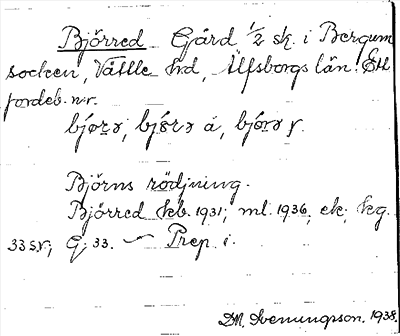 Björred Gård 1/2 sk. i Bergum
socken, Vättle hd, Älfsborgs län. Ett
jordeb. nr.
bjørə, bjǿrə á, bjǿrə
Björns rödjning.
Björred kb. 1931; ml. 1936, ek; kg.
33 sv; G. 33. — Prep i.
1938.